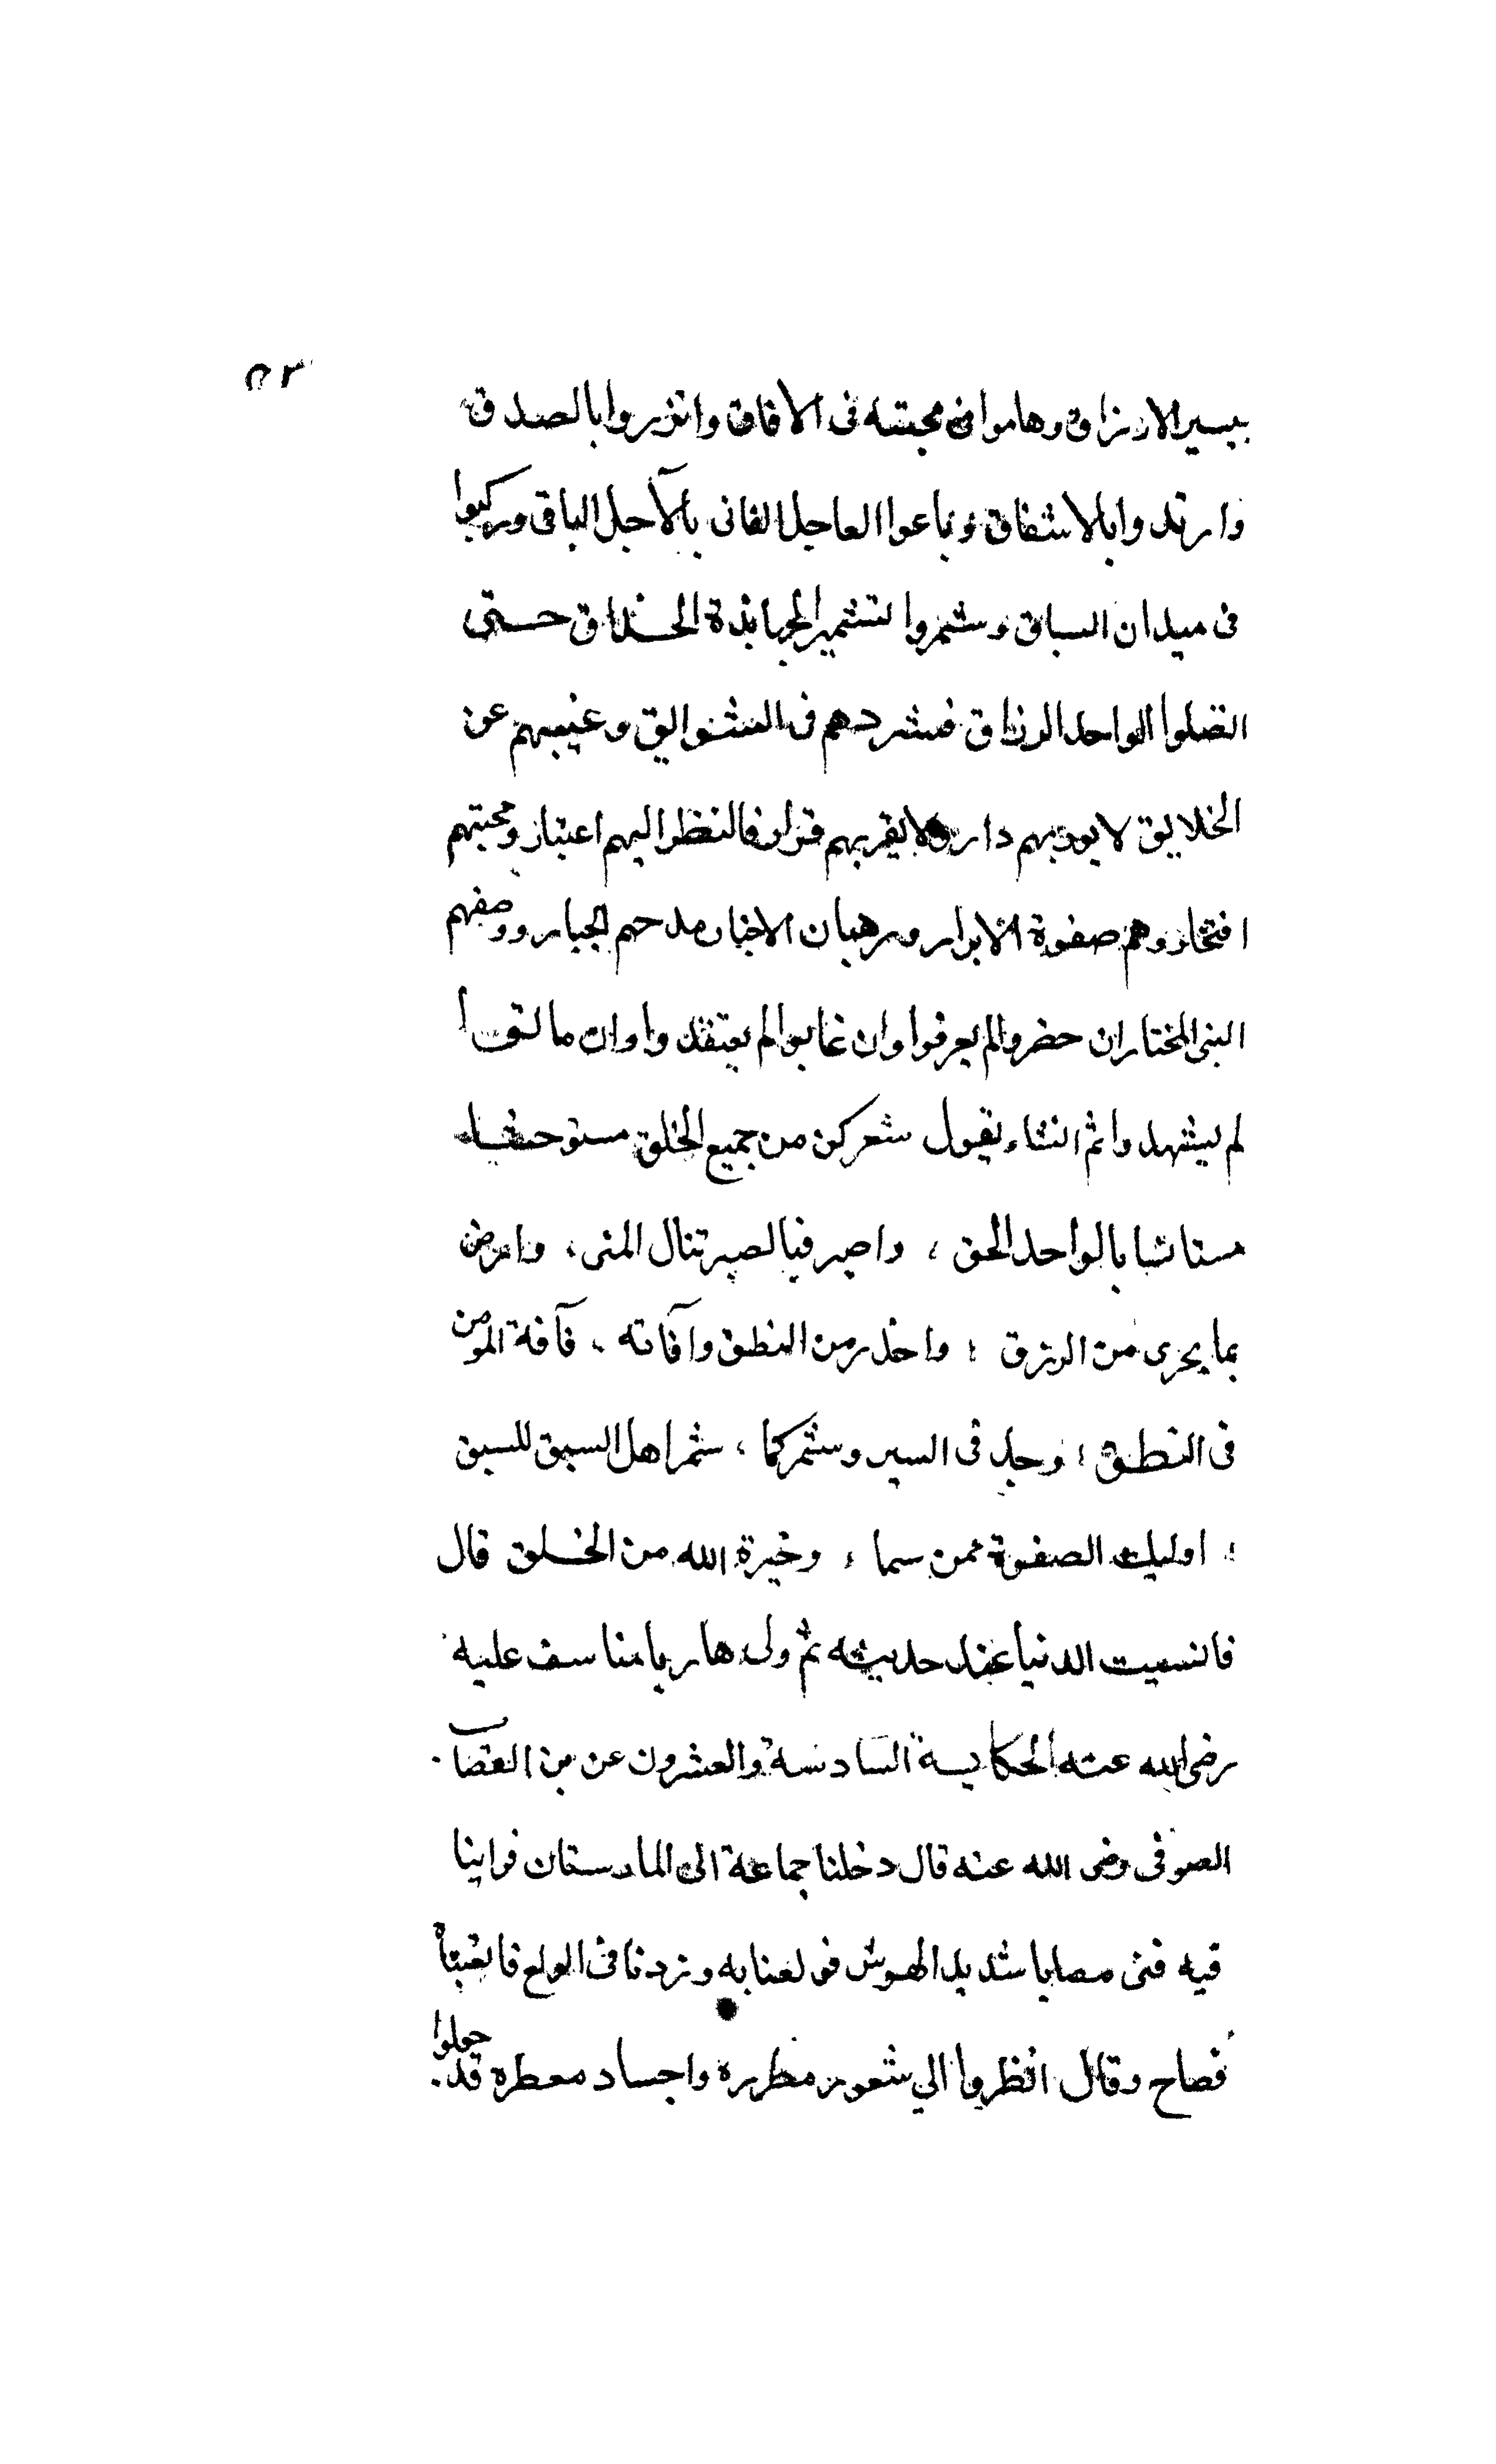 ٥٣
بيسير الارزاق وهاموا فى محبته فى الافاق واتزروا بالصدق
وارتدوا بالاشفاق وباعوا العاجل الفانى بالآجل الباقى وركبوا
فى ميدان السباق وشمروا تشمير الجهابذة الحذاق حتى
اتصلوا الواحد الرزاق فشردهم فى الشواهق وغيبهم عن
الخلايق لا يوويهم دار ولا يقربهم قرار فالنظر اليهم اعتبار ومحبتهم
افتخار وهم صفوة الابرار ورهبان الاخيار مدحهم الجبار ووصفهم
النبى المختار ان حضروا لم يعرفوا وان غابوا لم يفتقدوا وان ماتوا
لم يشهدوا ثم انشاء يقول شعر كن من جميع الخلق مستوحشا
مستانسا بالواحد الحق ، واصبر فبالصبر تنال المنى ، وارض
بما يجرى من الرزق ؛ واحذر من النطق وآفاته ، فآفة المومن
فى النطق ؛ وجد فى السير وشمر كما ، شمر اهل السبق للسبق
؛ اوليك الصفوة ممن سما ، وخيرة الله من الخلق قال
فانسيت الدنيا عند حديثه ثم ولى هاربا متاسف عليه
رضى الله عنه الحكاية السادسة والعشرون عن بن القصاب
الصوفى رضى الله عنه قال دخلنا جماعة الى المارستان فراينا
فيه فتى مصابا شديد الهوس فولعنا به وزدنا فى الولع فاتعبناه
فصاح وقال انظروا الي شعور مطرره واجساد معطره قد جعلوا